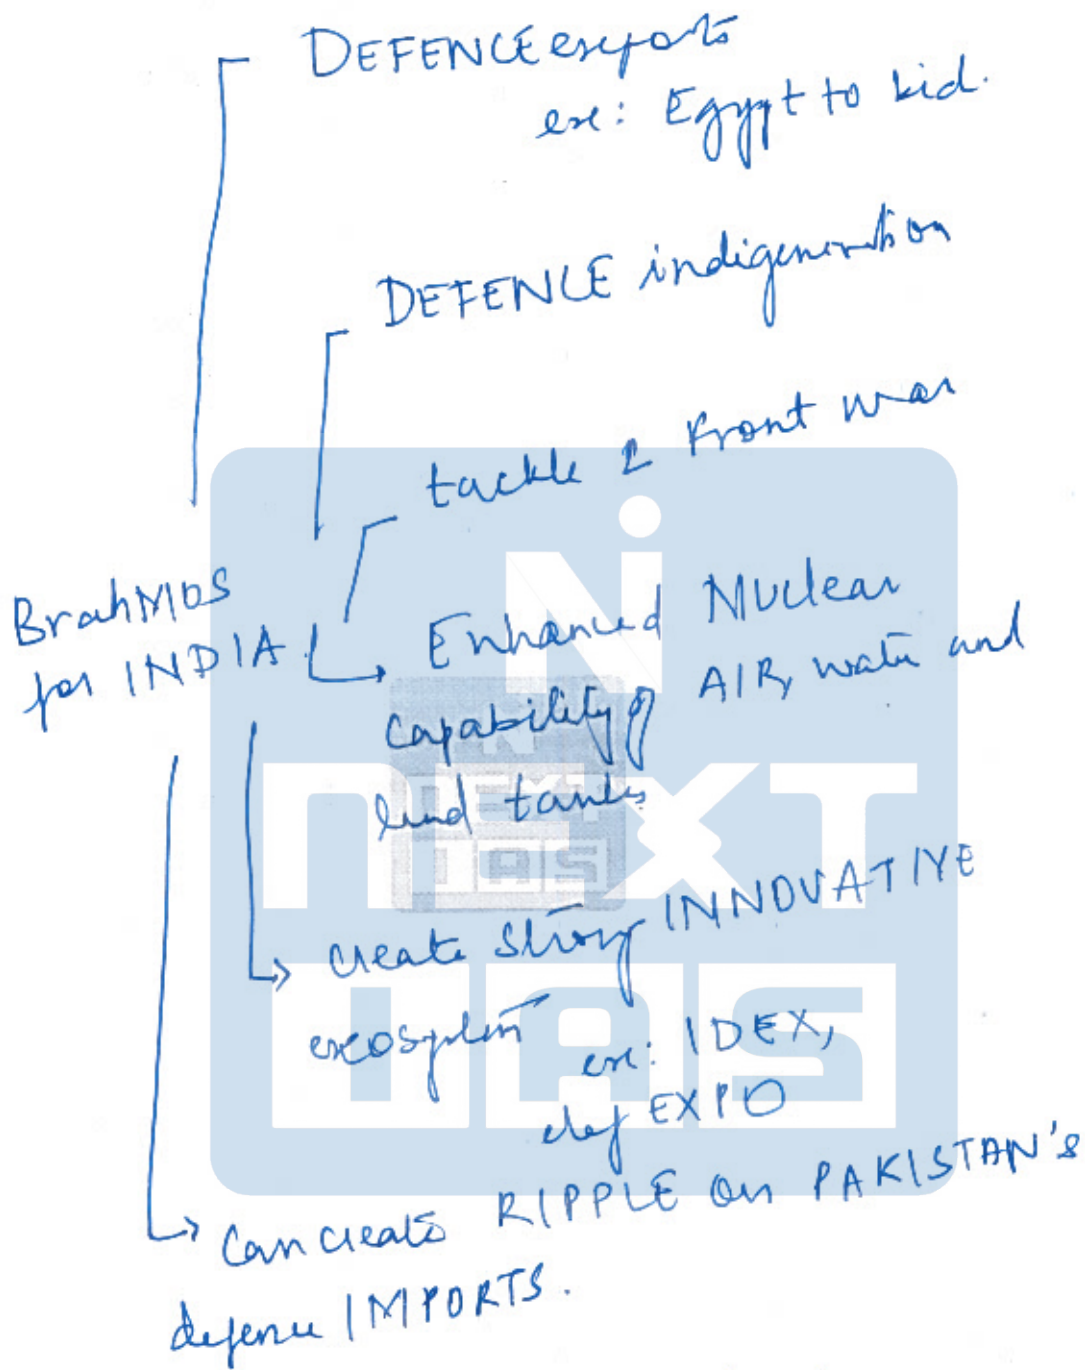 DEFENCE exports
exe: Egypt to bid.
DEFENCE indigenisation
tackle 2 front war
BrahMOS
for INDIA
Enhanced Nuclear
capability of AIR, water and
land tanks
create strong INNOVATIVE
excosystem
exe: IDEX,
def EXPO
Can create RIPPLE on PAKISTAN's
defence IMPORTS.
NEXT
IAS
NEXT
IAS